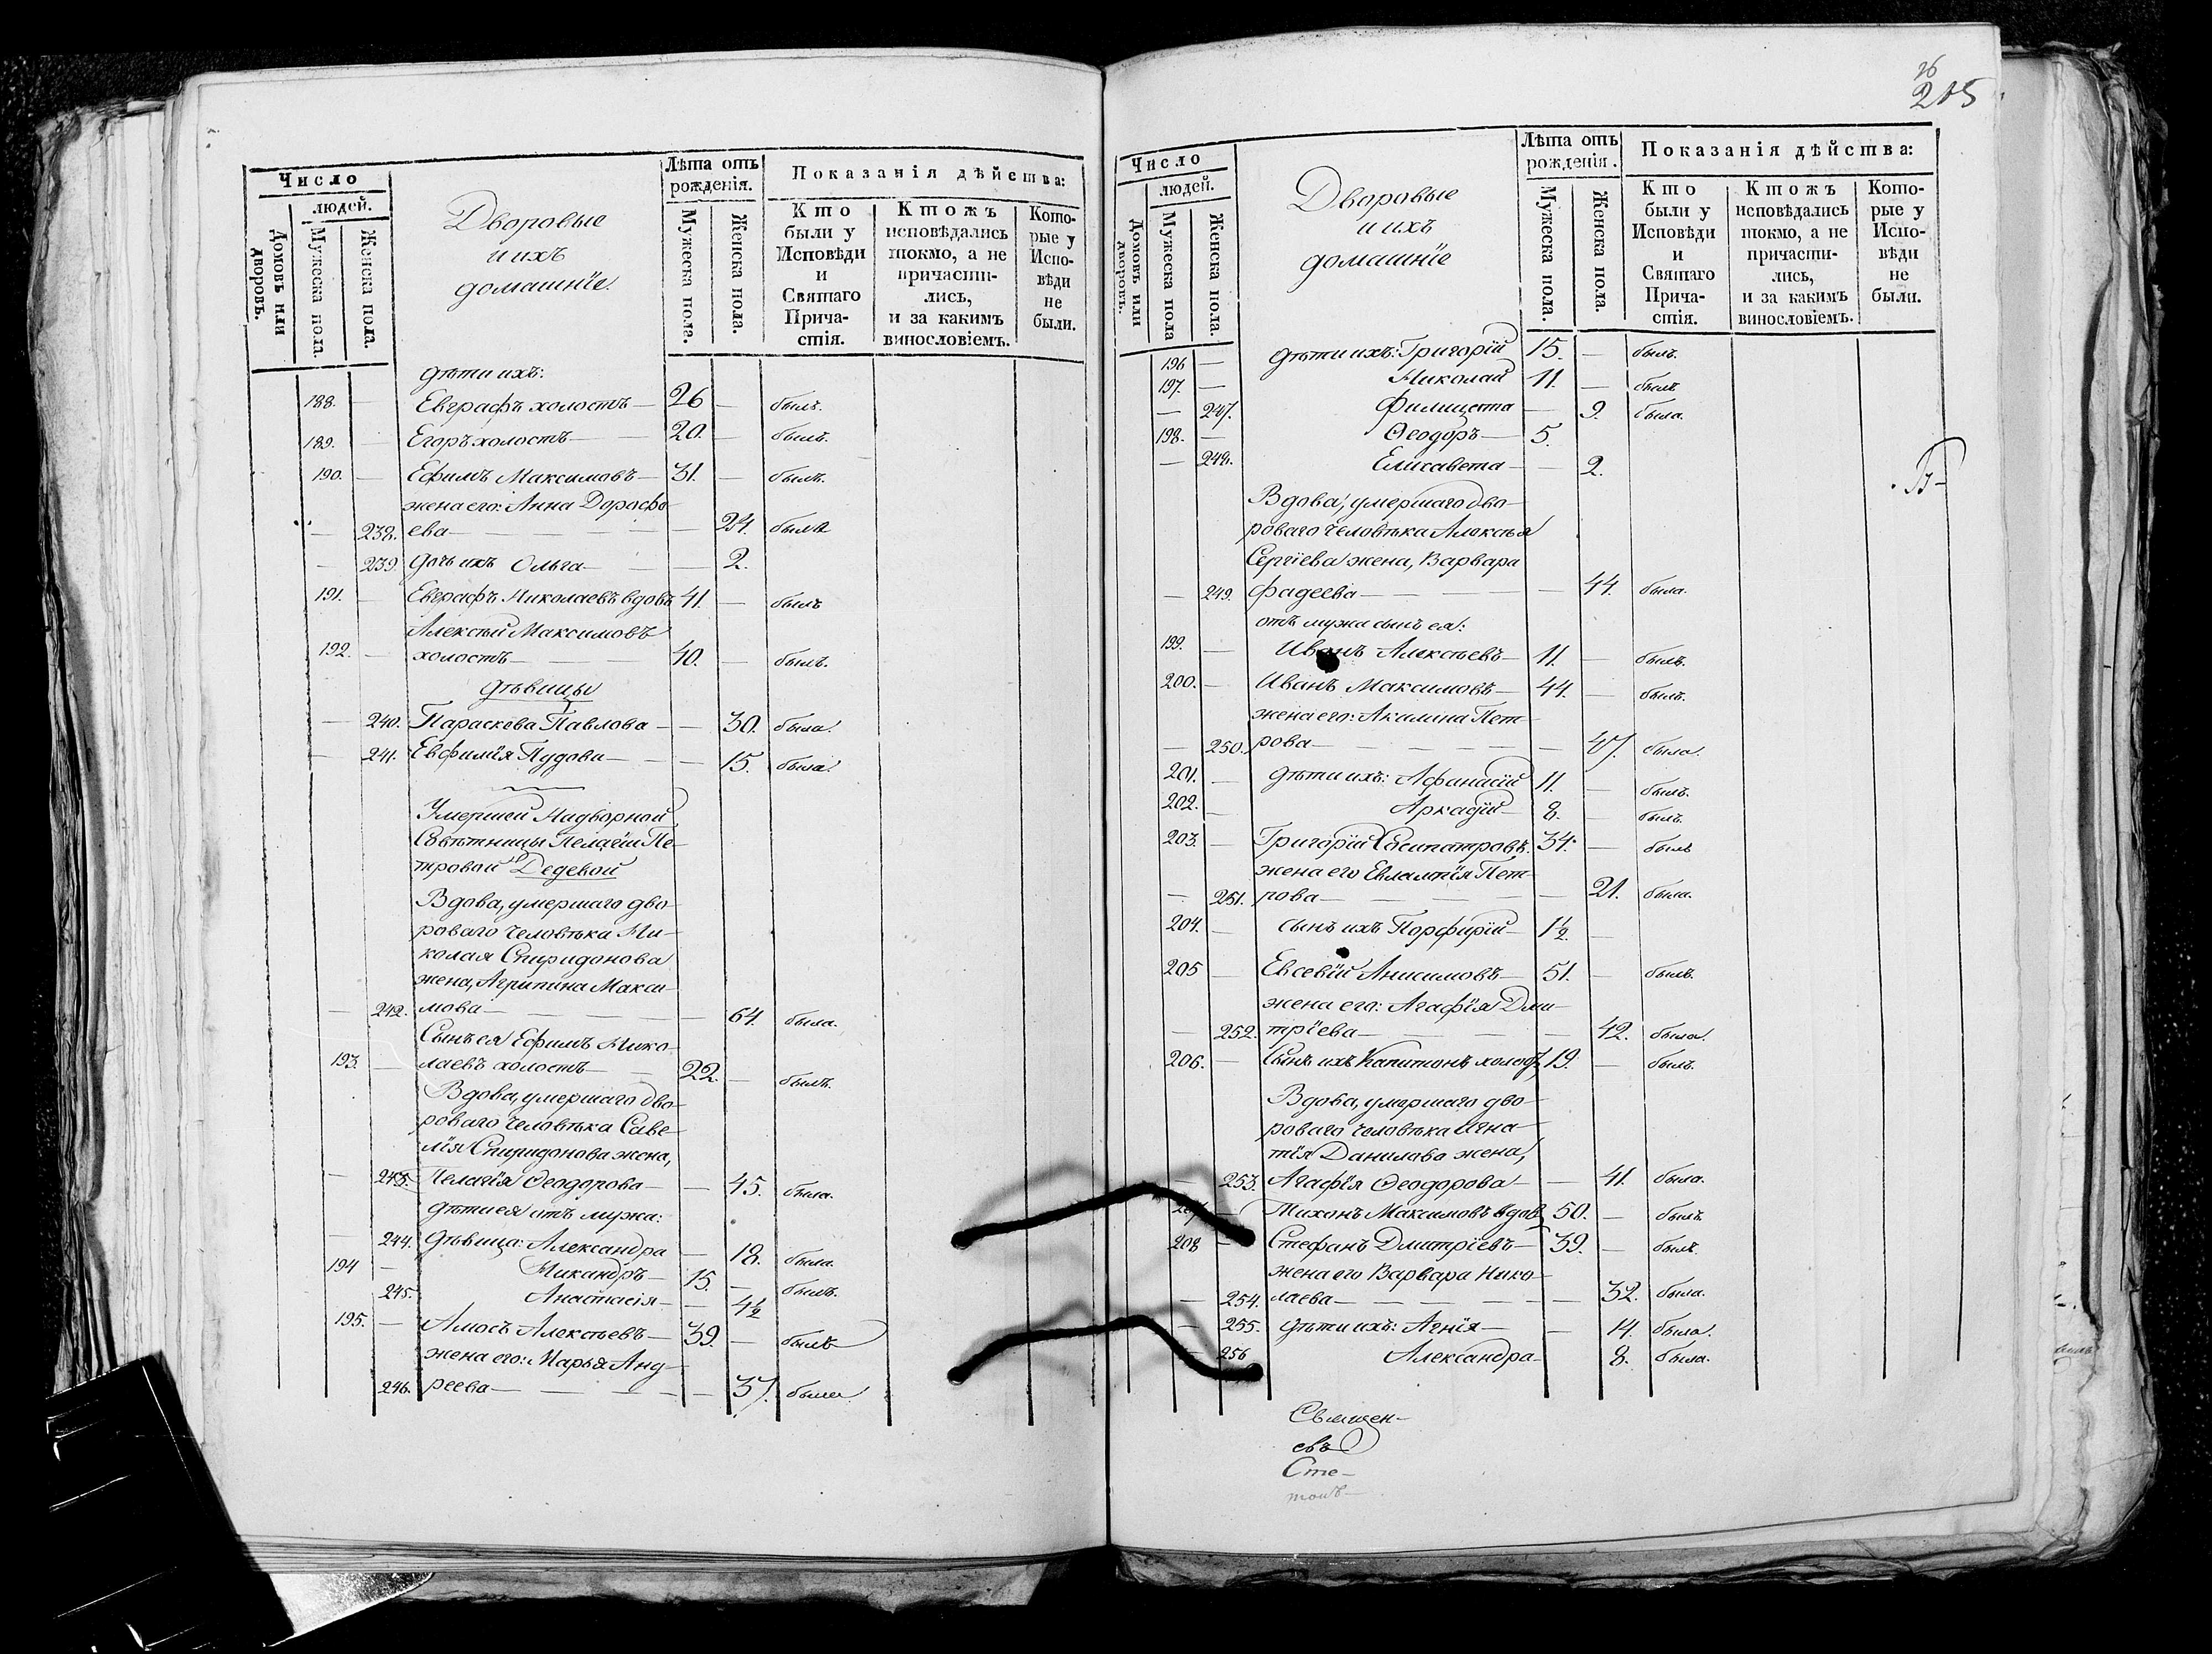 Число
людей.
Домовъ или дворовъ.
Мужеска пола.
Женска пола.
Дворовые
и ихъ
домашніе.
Лѣта отъ
рожденія.
Мужеска пола.
Женска пола.
Показанія дѣйства:
Кто были у Исповѣди и Святаго Прича-стія.
Ктожъ исповѣдались токмо, а не причасти-лись, и за какимъ винословіемъ.
Кото-рые у Испо-вѣди не были.
дѣти ихъ:
188. — Евграфъ холостъ — 26 — былъ.
189. — Егоръ холостъ — 20. — былъ.
190. — Ефимъ Максимовъ — 31. — былъ.
жена его: Анна Дорофе-
— 238. ева — — 24. была
— 239. дочь ихъ Ольга — — 2.
191. — Евграфъ Николаевъ вдовъ 41. — былъ
Алексѣй Максимовъ
192. — холостъ — 40. — былъ.
дѣвицы
— 240. Параскева Павлова — — 30. была.
— 241. Евфимія Пудова — — 15. была.
Умершей Надворной
Совѣтницы Пелагіи Пе-
тровой Дедевой
Вдова, умершаго дво-
роваго человѣка Ни-
колая Спиридонова
жена, Агрипина Макси-
— 242. мова — — 64. была.
Сынъ ея Ефимъ Нико-
193. — лаевъ холостъ — 22. — былъ.
Вдова, умершаго дво-
роваго человѣка Саве-
лія Спиридонова жена,
— 243. Пелагія Ѳеодорова — — 45. была.
дѣти ея отъ мужа:
— 244. дѣвица: Александра — 18. была.
194 — Никандръ — 15. — былъ.
245. Анастасія — — 4½
195. — Амосъ Алексѣевъ — 39. — былъ
жена его: Марья Анд-
246. реева — — 37. была.
26
215
Число
людей.
Домовъ или дворовъ.
Мужеска пола
Женска пола.
Дворовые
и ихъ
домашніе
Лѣта отъ
рожденія.
Мужеска пола.
Женска пола.
Показанія дѣйства:
Кто были у Исповѣди и Святаго Прича-стія.
Ктожъ исповѣдались токмо, а не причасти-лись, и за какимъ винословіемъ.
Кото-рые у Испо-вѣди не были.
196 — дѣти ихъ: Григорій 15. — былъ.
197. — Николай 11. — былъ
— 247. Филицата — 9. была.
198. — Ѳеодоръ — 5.
— 248. Елисавета — — 2.
Вдова, умершаго дво-
роваго человѣка Алексѣя
Сергіева жена, Варвара
— 249. Фадеева — — 44. была.
отъ мужа сынъ ея:
199. — Иванъ Алексѣевъ — 11. — былъ.
200. — Иванъ Максимовъ — 44. — былъ.
жена его: Акилина Пет-
— 250. рова — — 47. была.
201. — дѣти ихъ: Афанасій 11. — былъ.
202. — Аркадій — 8. — былъ.
203. — Григорій Сосипатровъ. 34. — былъ
жена его Евлампія Пет-
— 251. рова — — 21. была.
204. — сынъ ихъ Порфирій — 1½. —
205 — Евсевій Анисимовъ — 51. — былъ.
жена его: Агафія Дми-
— 252. тріева — — 42. была.
206. — Сынъ ихъ Капитонъ холостъ 19. — былъ.
Вдова, умершаго дво-
роваго человѣка Игна-
тія Данилова жена,
253. Агафія Ѳеодорова — — 41. была.
207. — Тихонъ Максимовъ вдовъ 50. — былъ.
208 — Стефанъ Дмитріевъ — 39. — былъ.
жена его Варвара Нико-
— 254. лаева — — 32. была.
— 255. дѣти ихъ: Агнія — — 14. была.
— 256 Александра — 8. была.
Священ-
евъ
Сте-